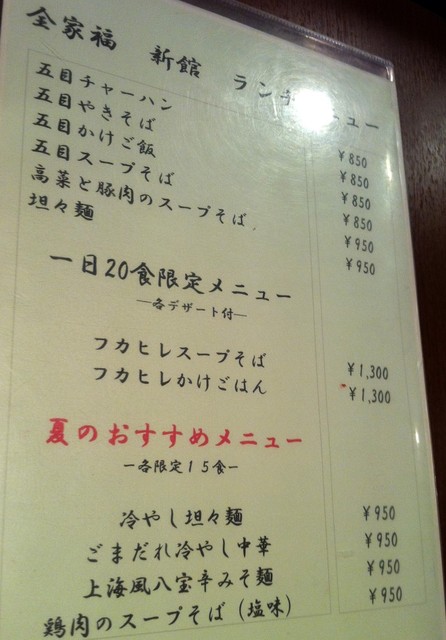 全家福 新館 ランチメニュー
五目チャーハン ¥850
五目やきそば ¥850
五目かけご飯 ¥850
五目スープそば ¥850
高菜と豚肉のスープそば ¥950
坦々麺 ¥950
一日20食限定メニュー
―各デザート付―
フカヒレスープそば ¥1,300
フカヒレかけごはん ¥1,300
夏のおすすめメニュー
ー各限定15食ー
冷やし坦々麺 ¥950
ごまだれ冷やし中華 ¥950
上海風八宝辛みそ麺 ¥950
鶏肉のスープそば(塩味) ¥950